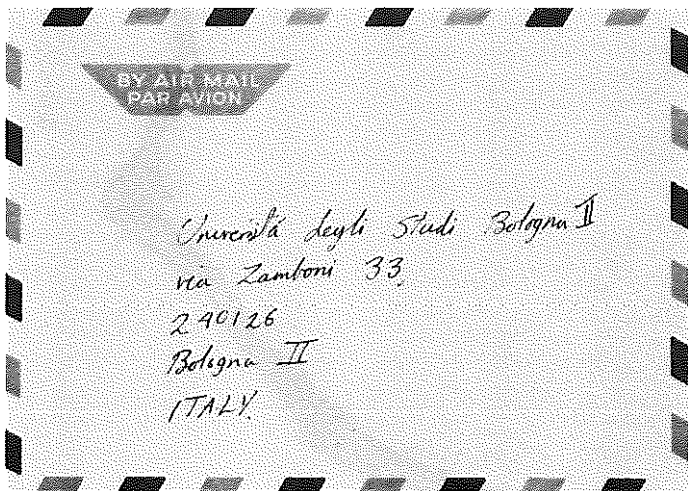 BY AIR MAIL
PAR AVION
Universitá degli Studi Bologna II
via Zamboni 33,
240126
Bologna II
ITALY.